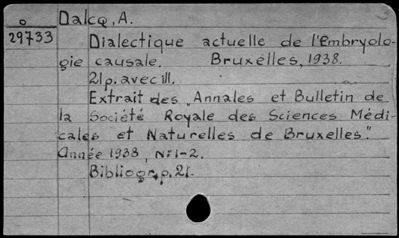 o
29733
Dalcq, A.
Dialectique actuelle de l'Embryolo-
gie causale. Bruxelles, 1938.
21p. avec ill.
Extrait des „Annales et Bulletin de
la Société Royale des Sciences Médi-
cales et Naturelles de Bruxelles."
Année 1938, No: 1-2.
Bibliogr. p. 21.